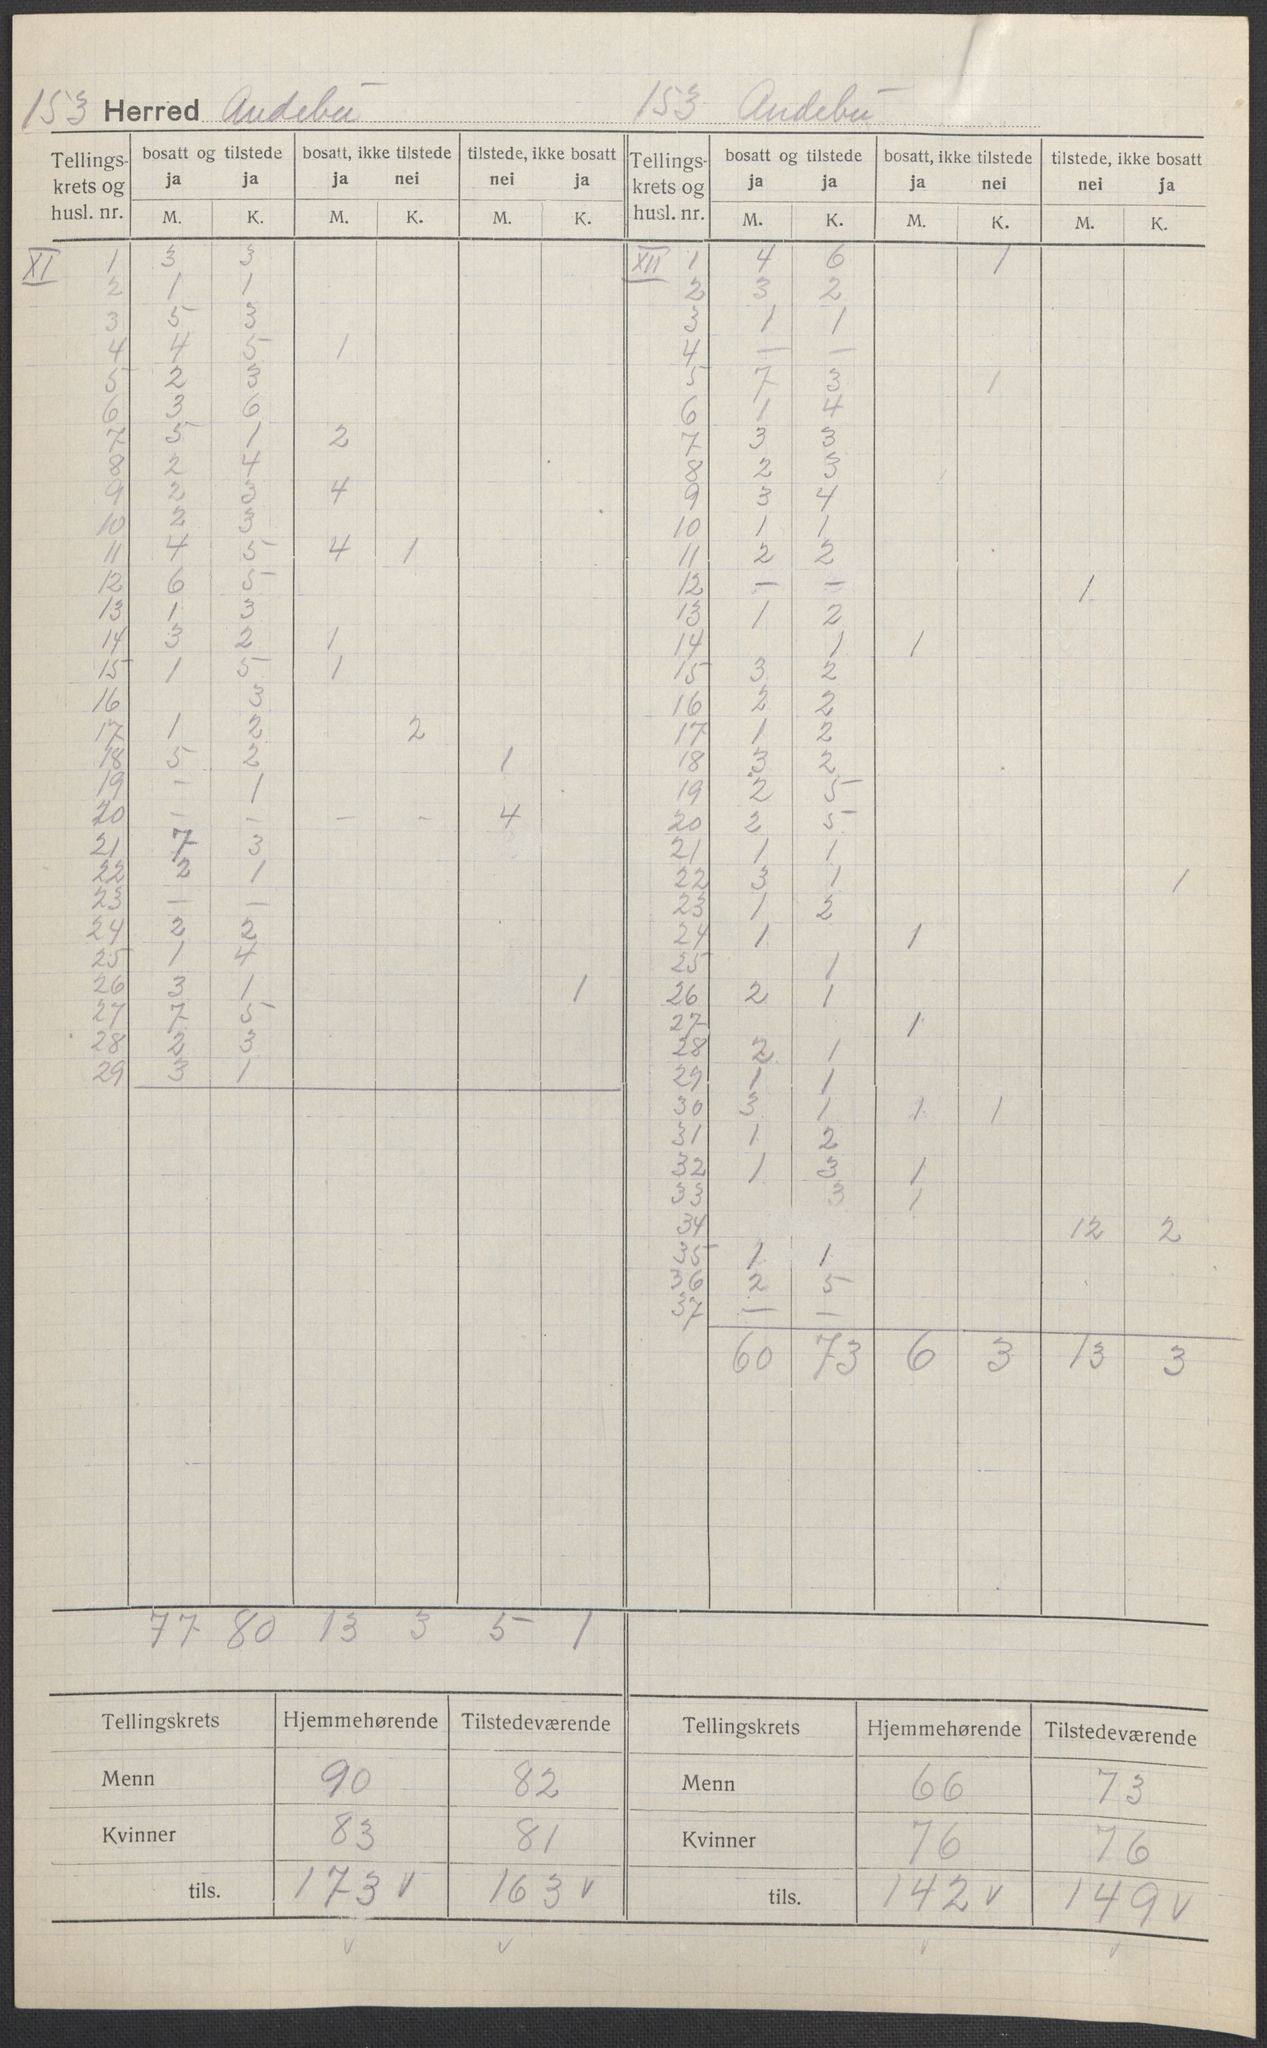 153 Herred Andebu 153 Andebu
Tellings- krets og husl. nr. | bosatt og tilstede ja M. | ja K. | bosatt, ikke tilstede ja M. | nei K. | tilstede, ikke bosatt nei M. | ja K.
Tellings- krets og husl. nr. | bosatt og tilstede ja M. | ja K. | bosatt, ikke tilstede ja M. | nei K. | tilstede, ikke bosatt nei M. | ja K.
XI 1 3 3
2 1 1
3 5 3
4 4 5 1
5 2 3
6 3 6
7 5 1 2
8 2 4
9 2 3 4
10 2 3
11 4 5 4 1
12 6 5
13 1 3
14 3 2 1
15 1 5 1
16 3
17 1 2 2
18 5 2 1
19 - 1
20 - - - - 4
21 7 3
22 2 1
23 - -
24 2 2
25 1 4
26 3 1 1
27 7 5
28 2 3
29 3 1
77 80 13 3 5 1
XII 1 4 6 1
2 3 2
3 1 1
4 - -
5 7 3 1
6 1 4
7 3 3
8 2 3
9 3 4
10 1 1
11 2 2
12 - - 1
13 1 2
14 1 1
15 3 2
16 2 2
17 1 2
18 3 2
19 2 5
20 2 5
21 1 1
22 3 1 1
23 1 2
24 1 1
25 1
26 2 1
27 1
28 2 1
29 1 1
30 3 1 1 1
31 1 2
32 1 3 1
33 3 1
34 12 2
35 1 1
36 2 5
37 - -
60 73 6 3 13 3
Tellingskrets Hjemmehørende Tilstedeværende
Menn 90 82
Kvinner 83 81
tils. 173 v 163 v
v v
Tellingskrets Hjemmehørende Tilstedeværende
Menn 66 73
Kvinner 76 76
tils. 142 v 149 v
v v